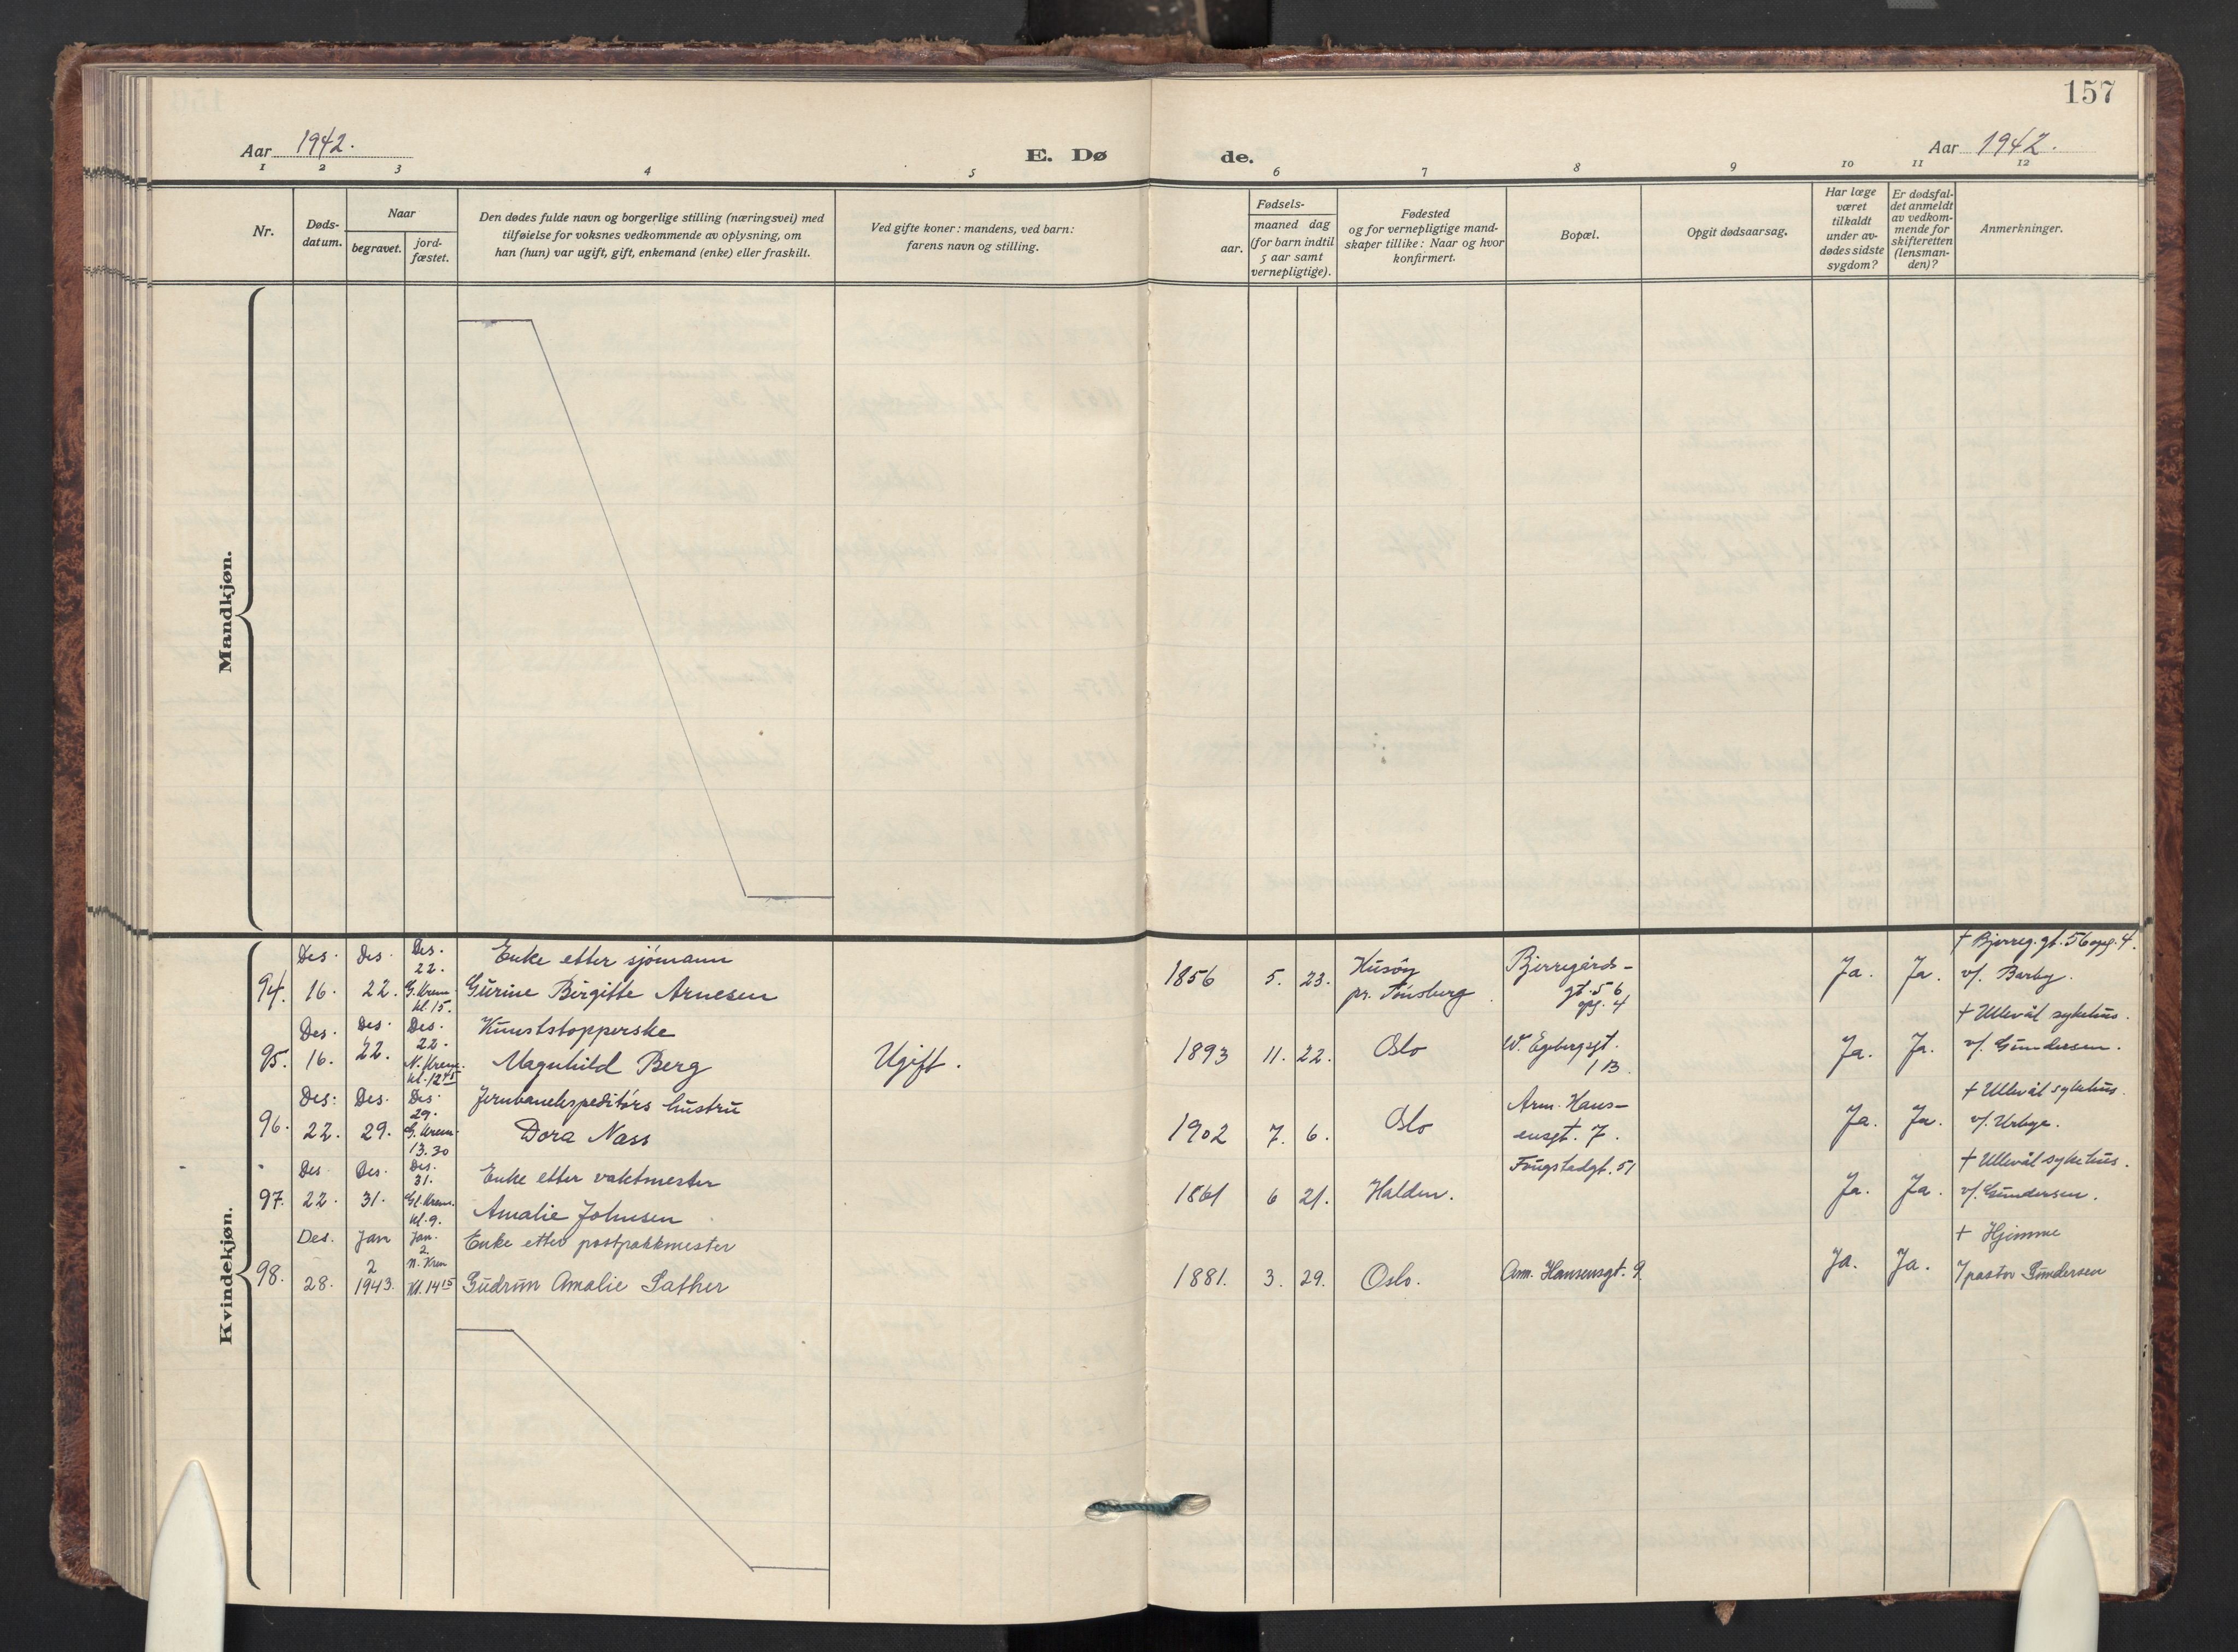 157
Aar 1942.
E. Dø
de.
Aar 1942.
1 2 3 4 5 6 7 8 9 10 11 12
Nr.
Døds-
datum.
Naar
begravet.
jord-
fæstet.
Den dødes fulde navn og borgerlige stilling (næringsvei) med
tilføielse for voksnes vedkommende av oplysning, om
han (hun) var ugift, gift, enkemand (enke) eller fraskilt.
Ved gifte koner: mandens, ved barn:
farens navn og stilling.
Fødsels-
aar.
maaned dag
(for barn indtil
5 aar samt
vernepligtige).
Fødested
og for vernepligtige mand-
skaper tillike: Naar og hvor
konfirmert.
Bopæl.
Opgit dødsaarsag.
Har læge
været
tilkaldt
under av-
dødes sidste
sygdom?
Er dødsfal-
det anmeldt
av vedkom-
mende for
skifteretten
(lensman-
den)?
Anmerkninger.
Mandkjøn.
Kvindekjøn.
94.
Des.
16.
Des.
22.
Des.
22.
G. Krem
kl. 15.
Enke etter sjømann
Gurine Birgitte Arnesen
1856
5.
23.
Husøy
pr. Tønsberg
Bjerregårds-
gt. 56
opg. 4
Ja.
Ja.
† Bjerreg. gt. 56 opg. 4.
v/. Barby.
95.
Des.
16.
Des.
22.
Des.
22.
N. Krem.
kl. 12 45
Kunststopperske
Magnhild Berg
Ugift.
1893
11.
22.
Oslo
W. Egebergsgt.
1 B.
Ja.
Ja.
† Ullevål sykehus.
v/. Gundersen.
96.
Des.
22.
Des.
29.
Des.
29.
G. Krem.
13.30
Jernbaneekspeditørs hustru
Dora Nass
1902
7.
6.
Oslo
Arm. Hans-
ensgt. 7.
Ja.
Ja.
† Ullevål sykehus.
v/. Urbye.
97.
Des.
22.
Des.
31.
Des.
31.
Gl. Krem.
kl. 9.
Enke etter vaktmester
Amalie Johnsen
1861
6
21.
Halden.
Fougstadgt. 51
Ja.
Ja.
† Ullevål sykehus.
v/. Gundersen.
98.
Des.
28.
Jan
2
1943.
Jan.
2
N. Krem
Kl. 14 15
Enke etter postpakkmester
Gudrun Amalie Sather
1881.
3.
29.
Oslo.
Arm. Hansensgt. 9
Ja.
Ja.
† Hjemme
/pastor Gundersen